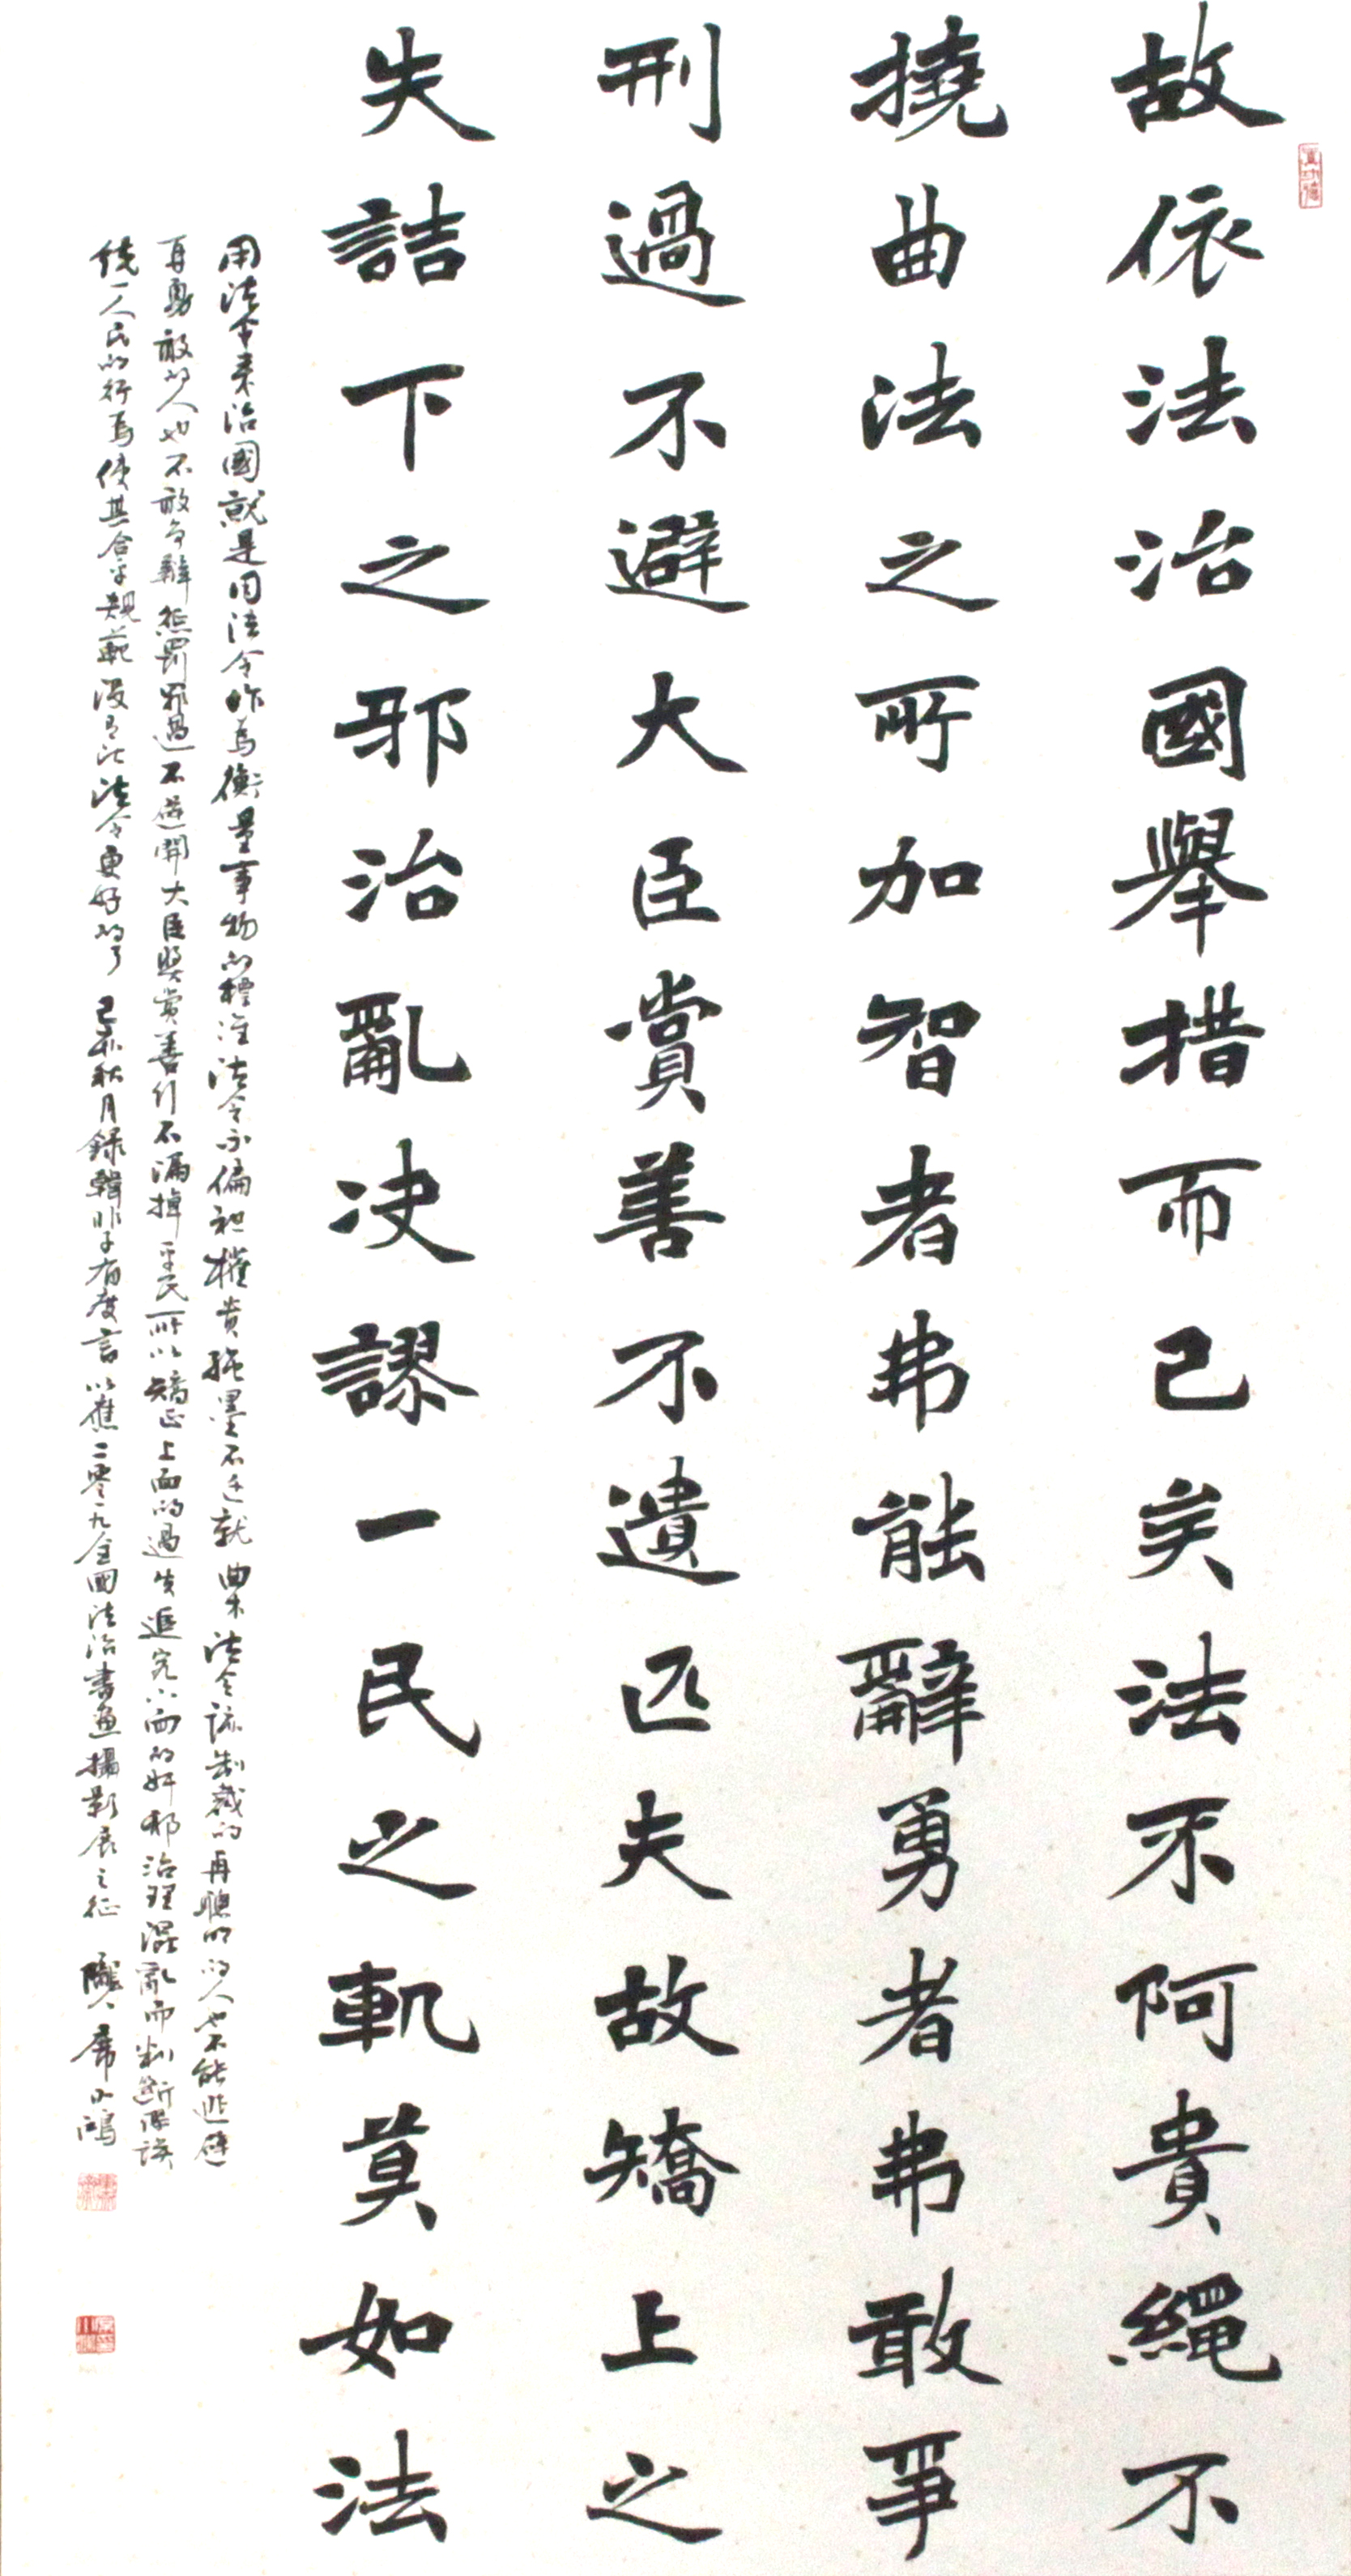 故依法治國舉措而已矣法不阿貴繩不
撓曲法之所加智者弗能辭勇者弗敢爭
刑過不避大臣賞善不遺匹夫故矯上之
失詰下之邪治亂决謬一民之軌莫如法
用法令来治國就是用法令作爲衡量事物的標准法令不偏袒權貴繩墨不迁就曲木法令該制裁的再聰明的人也不能逃避
再勇敢的人也不敢争辯懲罰罪過不避開大臣獎賞善行不漏掉平民所以矯正上面的過失追究下面的奸邪治理混亂而判断謬誤
統一人民的行爲使其合乎規範没有比法令更好的了 己亥秋月録韓非子有度言以應二零一九全國法治書畫攝影展之征 隴人席小鴻